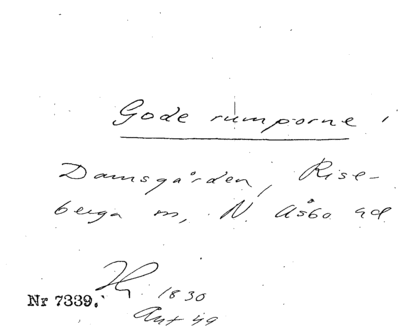 Gode rumporne i
Damsgården, Rise-
berga sn, N. Åsbo hd
Nr 7339. 1830
Ant